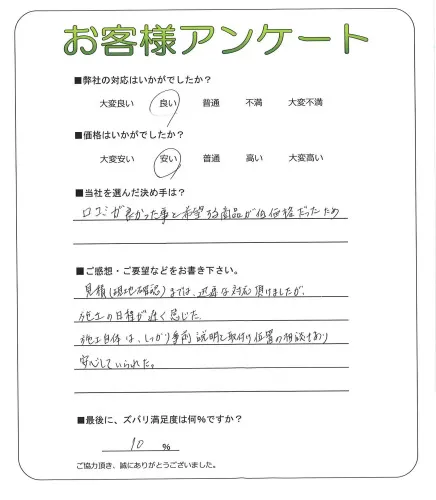 お客様アンケート
■弊社の対応はいかがでしたか?
大変良い 良い 普通 不満 大変不満
■価格はいかがでしたか?
大変安い 安い 普通 高い 大変高い
■当社を選んだ決め手は?
口コミが良かった事と希望する商品が低価格だったため
■ご感想・ご要望などをお書き下さい。
見積(現地確認)までは、迅速な対応頂けましたが、
施工の日程が遅く感じた
施工自体は、しっかり事前説明と取付け位置の相談もあり
安心していられた。
■最後に、ズバリ満足度は何%ですか?
90 %
ご協力頂き、誠にありがとうございました。